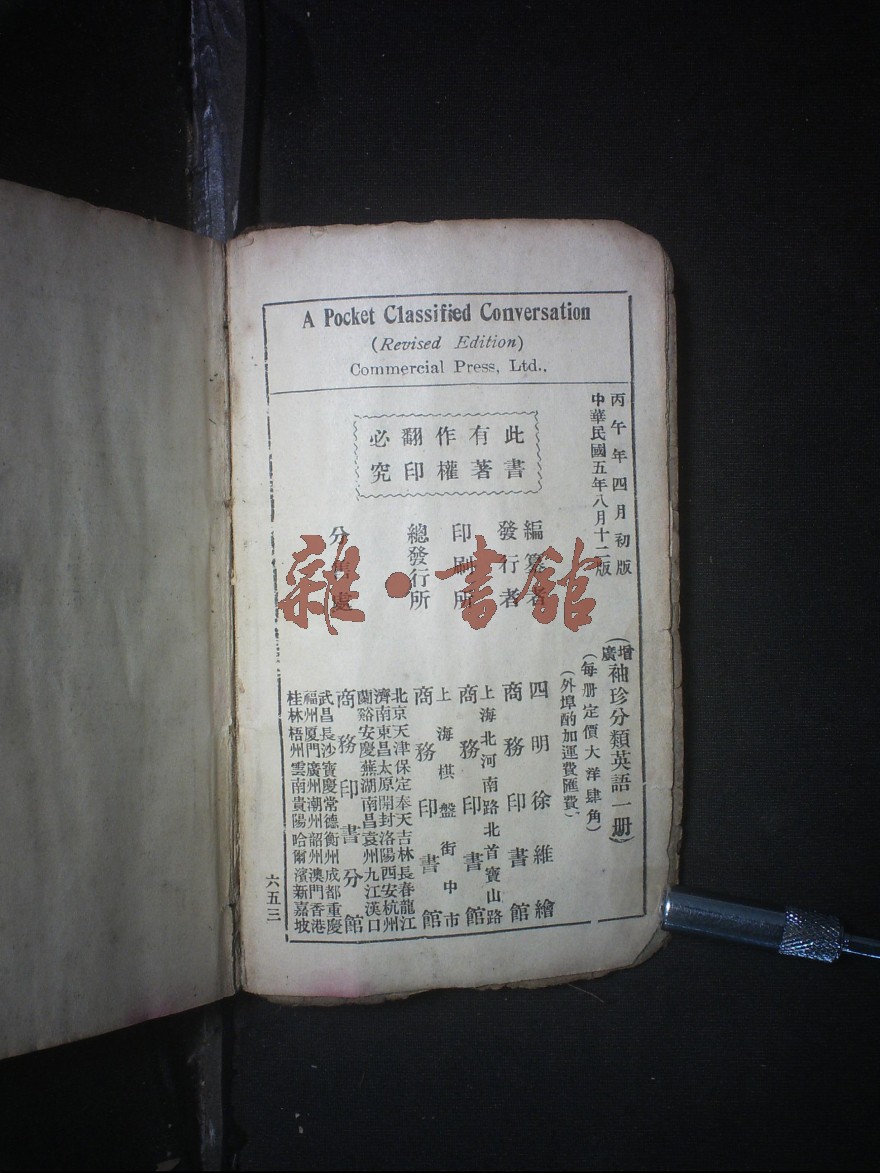 A Pocket Classified Conversation
(Revised Edition)
Commercial Press, Ltd.,
丙午年四月初版
中華民國五年八月十二版
此書有著作權翻印必究
(增廣袖珍分類英語一册)
(每册定價大洋肆角)
(外埠酌加運費匯費)
編纂者 四明徐維繪
發行者 商務印書館
印刷所 上海北河南路北首寶山路
商務印書館
總發行所 上海棋盤街中市
商務印書館
分售處 北京天津保定奉天吉林長春龍江
濟南東昌太原開封洛陽西安杭州
蘭谿安慶蕪湖南昌袁州九江漢口
商務印書分館
武昌長沙寶慶常德衡州成都重慶
福州厦門廣州潮州韶州澳門香港
桂林梧州雲南貴陽哈爾濱新嘉坡
六五三
雜·書館